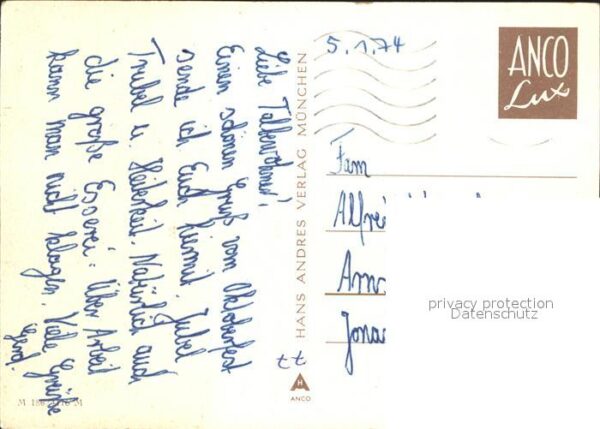 Liebe Talbewohner!
Einen schönen Gruß vom Oktoberfest
sende ich Euch hiermit. Jubel
Trubel u. Heiterkeit. Natürlich auch
die große Esserei. Über Arbeit
kann man nicht klagen. Viele Grüße
Gerd.
HANS ANDRES VERLAG MÜNCHEN
77
ANCO
M
M
5.1.74
ANCO
Lux
Fam
Alfre
Am
Jona
privacy protection
Datenschutz